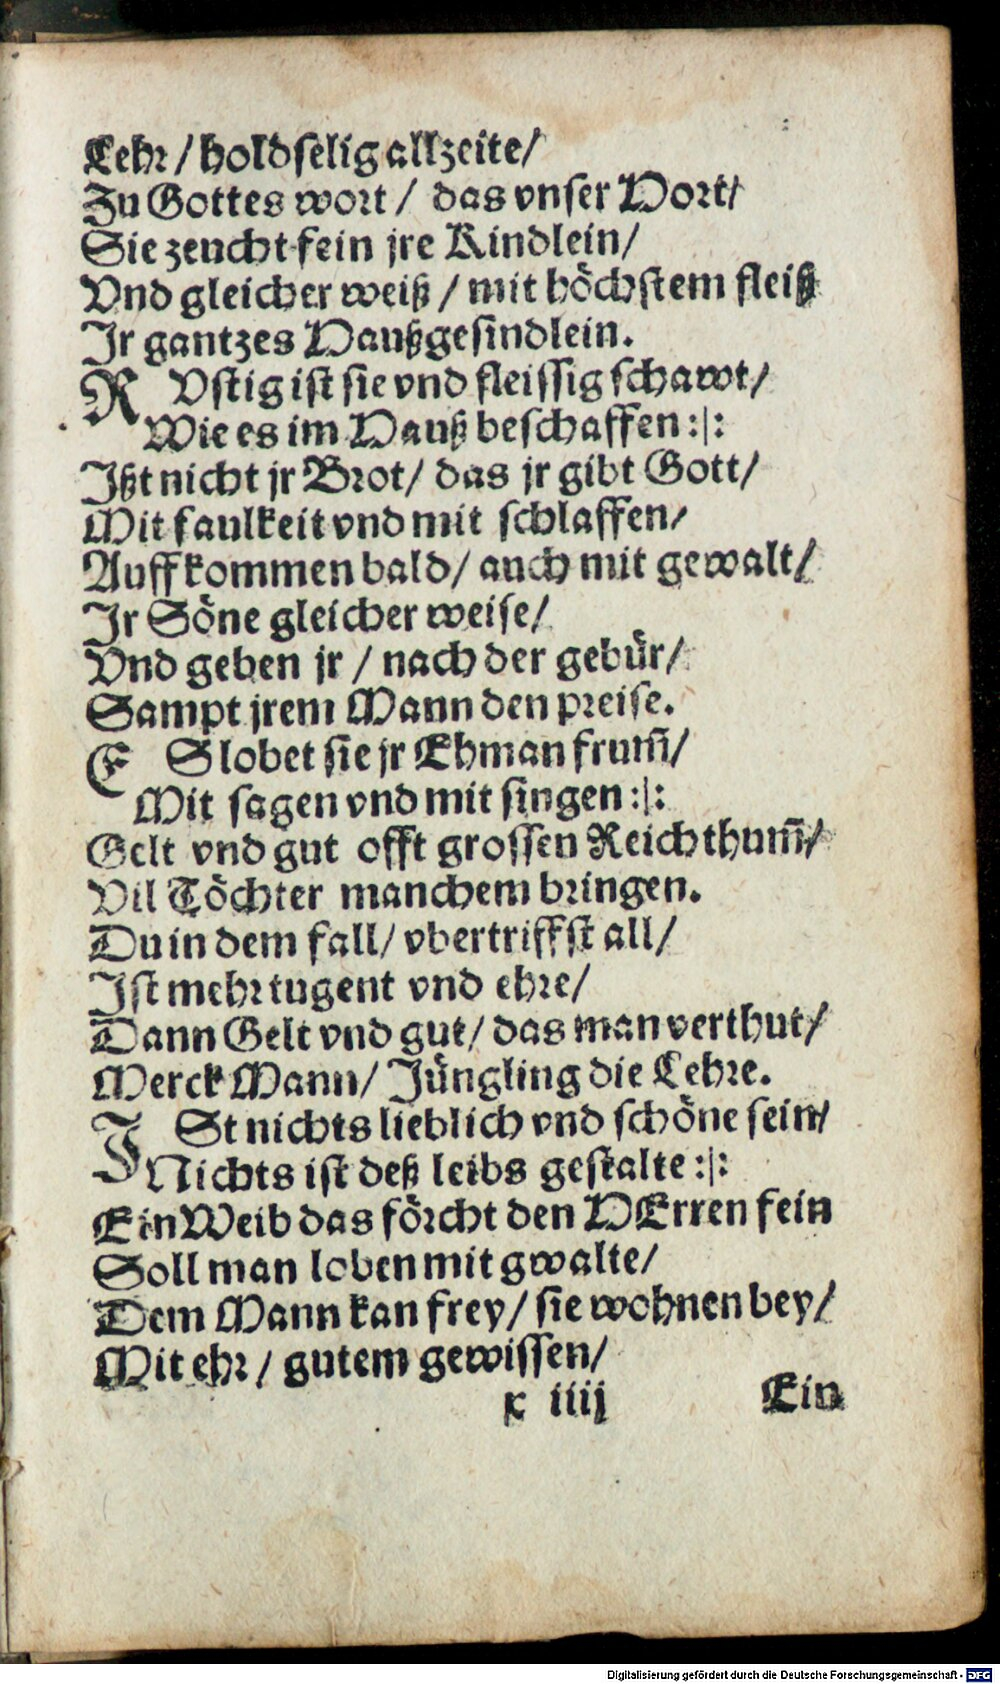 Lehr / holdselig allzeite /
Zu Gottes wort / das vnser Hort /
Sie zeucht fein jre Kindlein /
Vnd gleicher weiß / mit höchstem fleiß
Jr gantzes Haußgesindlein.
RVstig ist sie vnd fleissig schawt /
Wie es im Hauß beschaffen :|:
Jßt nicht jr Brot / das jr gibt Gott /
Mit faulkeit vnd mit schlaffen /
Auffkommen bald / auch mit gewalt /
Jr Söne gleicher weise /
Vnd geben jr / nach der gebür /
Sampt jrem Mann den preise.
ES lobet sie jr Ehman frum̃ /
Mit sagen vnd mit singen :|:
Gelt vnd gut offt grossen Reichthum̃ /
Vil Töchter manchem bringen.
Du in dem fall / vbertriffst all /
Jst mehr tugent vnd ehre /
Dann Gelt vnd gut / das man verthut /
Merck Mann / Jüngling die Lehre.
JSt nichts lieblich vnd schöne sein /
Nichts ist deß leibs gestalte :|:
Ein Weib das förcht den HErren fein
Soll man loben mit gwalte /
Dem Mann kan frey / sie wohnen bey /
Mit ehr / gutem gewissen /
x iiij Ein
Digitalisierung gefördert durch die Deutsche Forschungsgemeinschaft - DFG